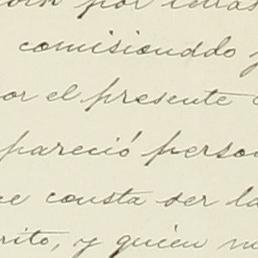 por letras
comisionddo
or el presente
pareció person
e consta ser la
rito, y quien